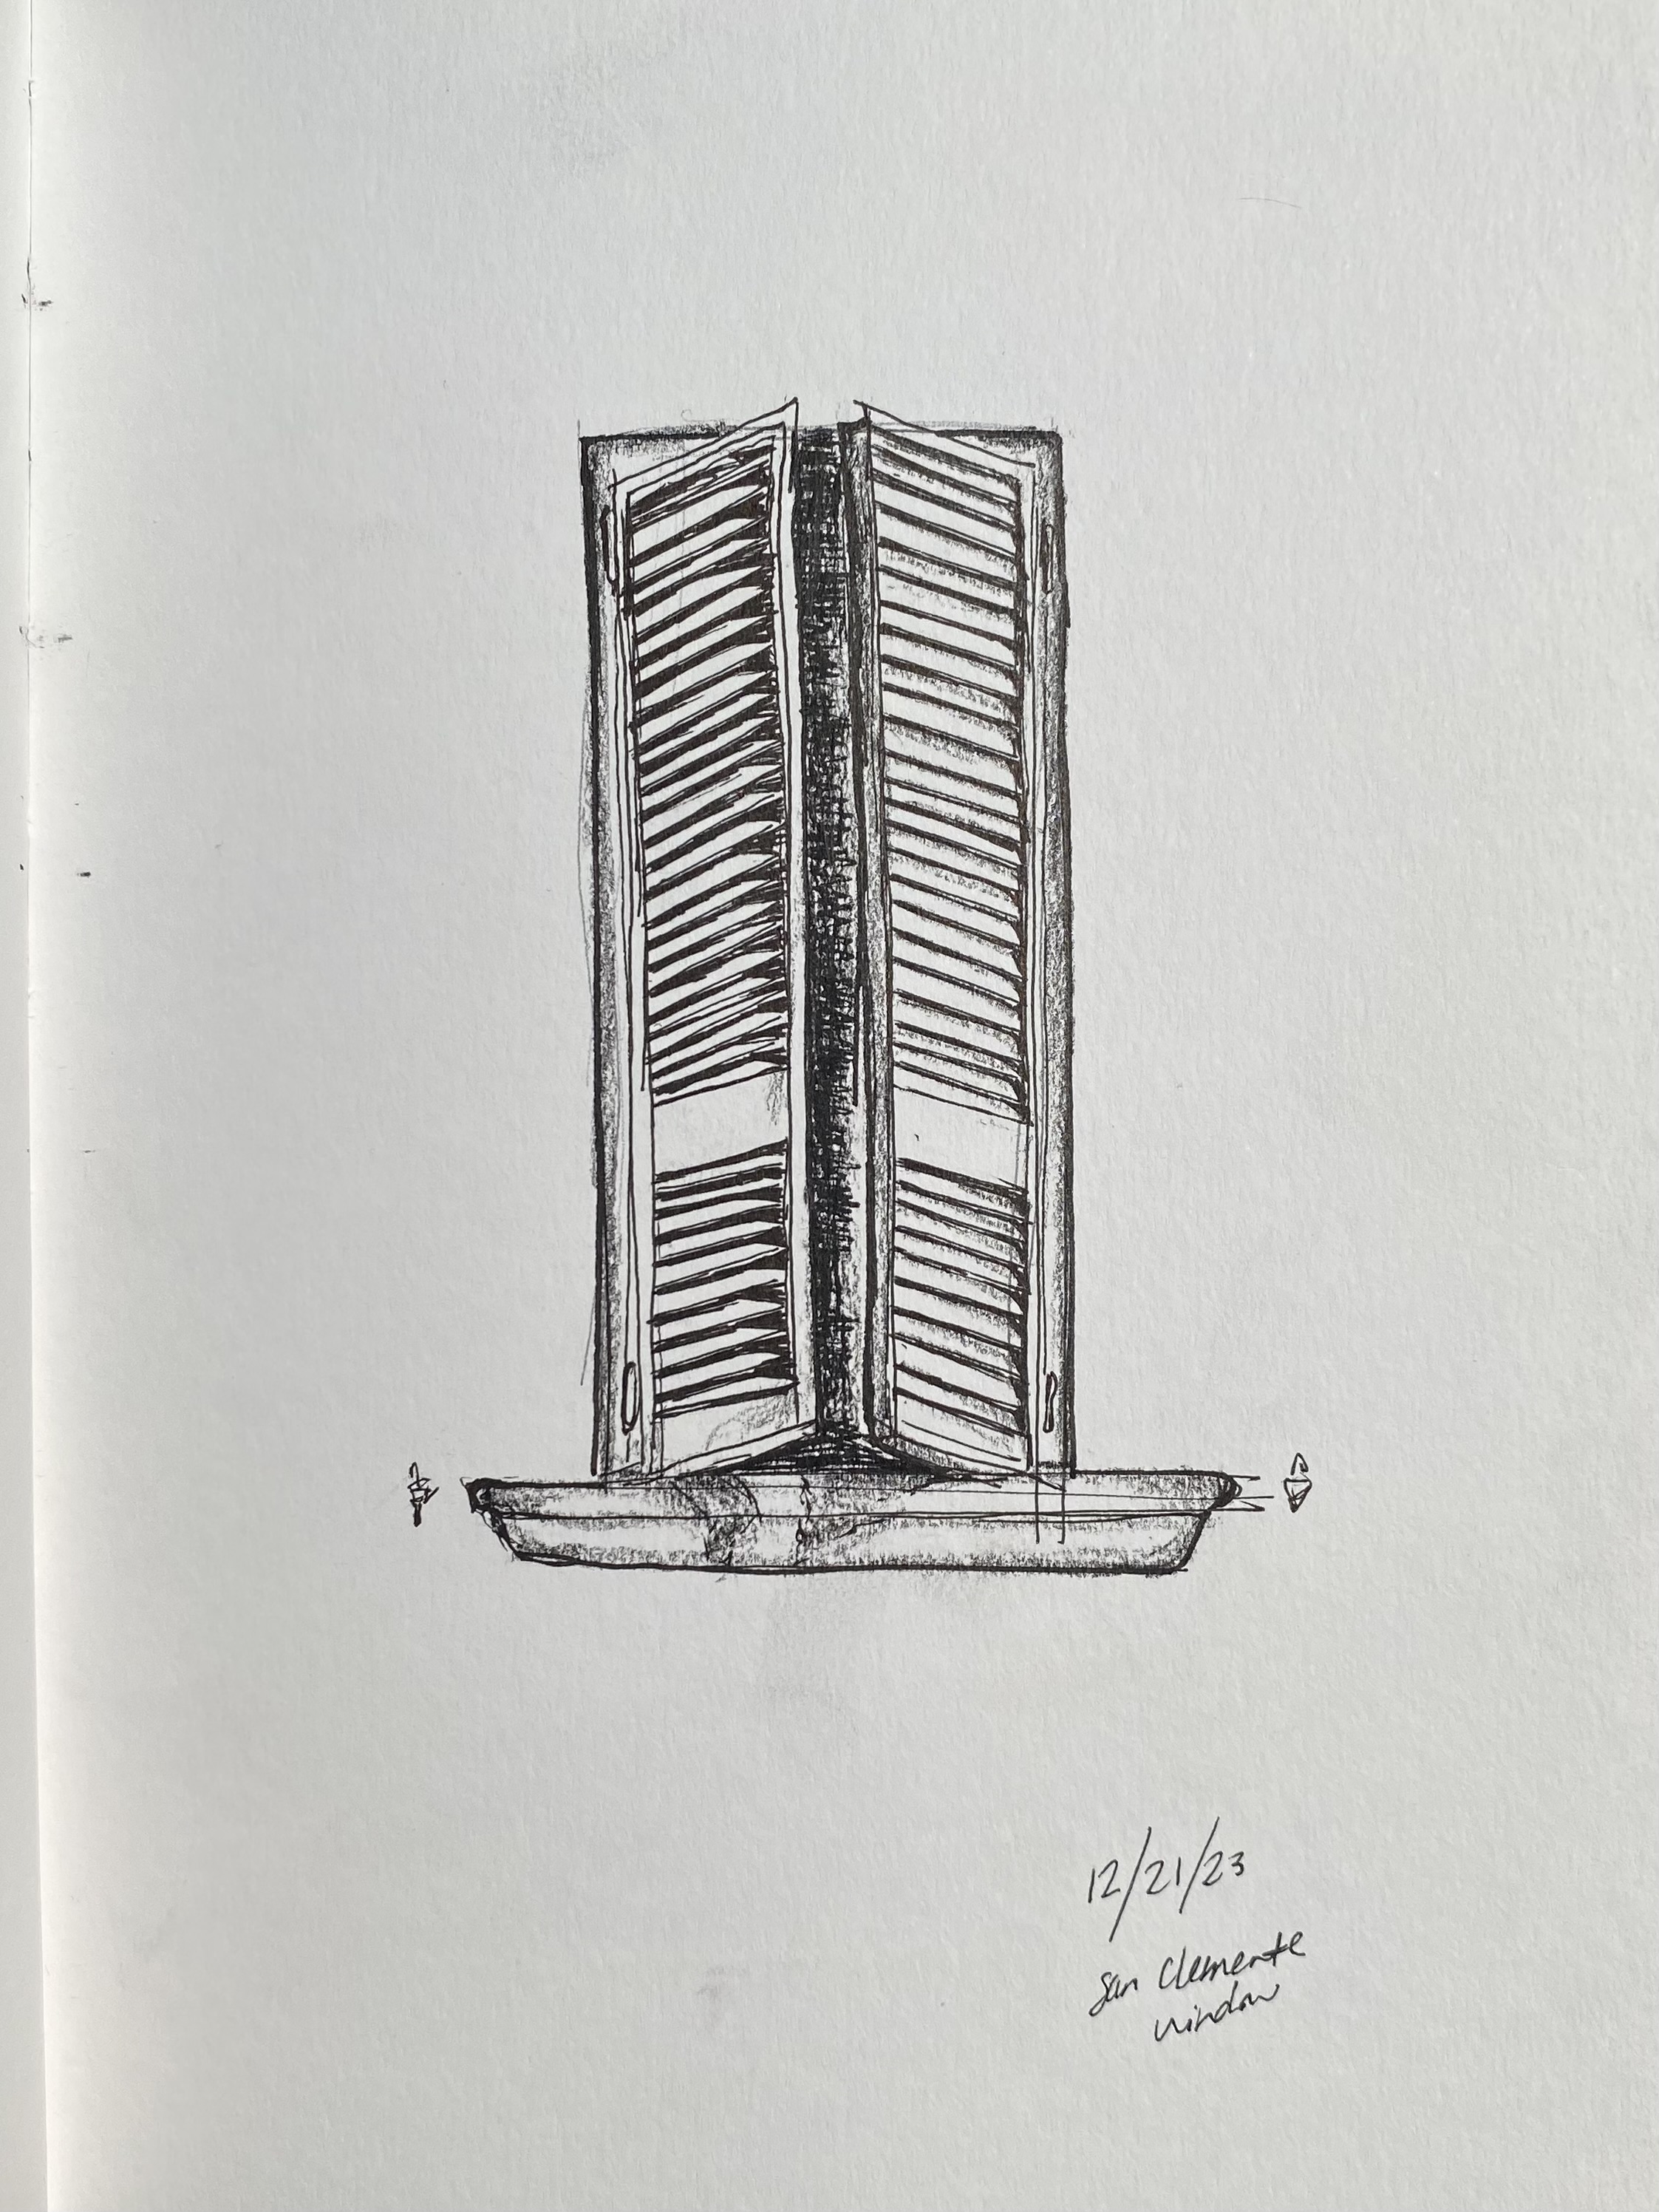 12/21/23
San Clemente
window